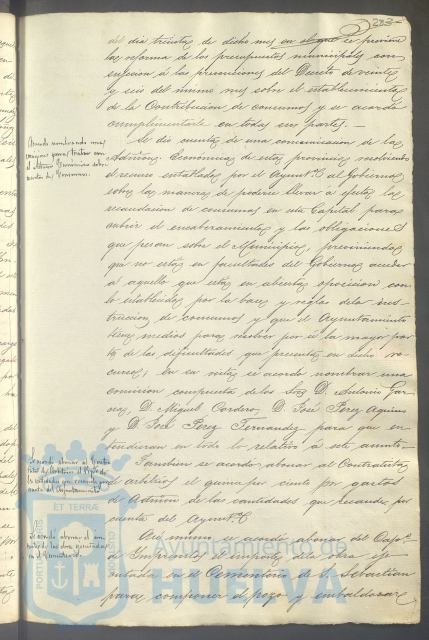 283
del dia treinta de dicho mes en el que se previene
la reforma de los presupuestos municipales con
sujecion á las prevenciones del Decreto de veinte
y seis del mismo mes sobre el establecimiento
de la Contribucion de consumos y se acordó
cumplimentarle en todas sus partes.—
Acuerdo nombrando una
comision para tratar con
el Admor Economico sobre
asuntos de Consumos.
Se dio cuenta de una comunicacion de la
Admon. Economica de esta provincia resolviendo
el recurso entablado por el Ayunt.º al Gobierno
sobre la manera de poderse llevar a efecto la
recaudacion de consumos en esta Capital para
cubrir el encabezamiento y las obligaciones
que pesan sobre el Municipio, previniendo
que no está en facultades del Gobierno acceder
á aquello que está en abierta oposicion con
lo establecido por la bases y reglas de la ins-
truccion de consumos y que el Ayuntamiento
tiene medios para resolver por él la mayor par-
te de las dificultades que presenta en dicho re-
curso; en su vista se acordó nombrar una
comision compuesta de los Sres D. Antonio Gar-
cia, D. Miguel Cordero, D. José Perez
y D. José Perez Fernandez para que en-
tendieran en todo lo relativo á este asunto.—
Se acordó abonar al Contra-
tista de arbitrios el
las cantidades que recaude por
cuenta del Ayuntamiento
Tambien se acordó abonar al Contratista
de arbitrios el quince por ciento por gastos
de Admon de las cantidades que recaude por
cuenta del Ayunt.º
Se acordó abonar el im-
porte de las obras ejecutadas
en el Cementerio
Asi mismo se acordó abonar del Cap.º
de Imprevistos el importe de la obra eje-
cutada en el Cementerio de S. Sebastian
para componer el pozo y embaldosar
ET TERRÆ
PORTUS
CUSTODIA
Ayuntamiento de
HUELVA